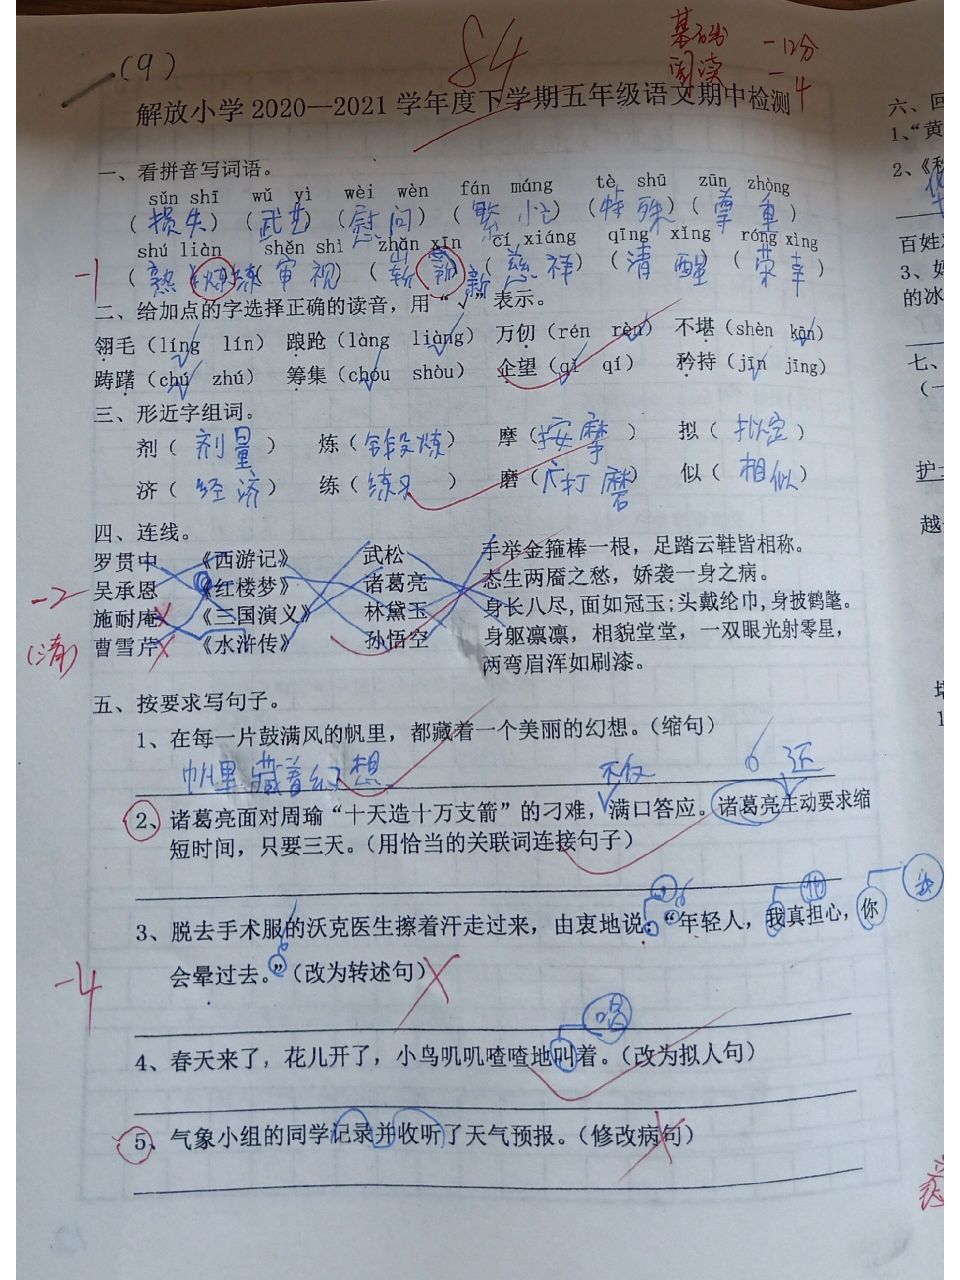 (9)
84
基础 -12分
阅读 -4
解放小学2020—2021学年度下学期五年级语文期中检测
一、看拼音写词语。
sǔn shī wǔ yì wèi wèn fán máng tè shū zūn zhòng
(损失)(武艺)(慰问)(繁忙)(特殊)(尊重)
shú liàn shěn shì zhǎn xīn cí xiáng qīng xǐng róng xìng
-1
(熟练)(审视)(崭新)(慈祥)(清醒)(荣幸)
二、给加点的字选择正确的读音，用“√”表示。
翎毛（líng lín） 踉跄（làng liàng） 万仞（rén rèn） 不堪（shèn kān）
踌躇（chú zhú） 筹集（chóu shòu） 企望（qǐ qí） 矜持（jīn jīng）
三、形近字组词。
剂（剂量） 炼（锻炼） 摩（按摩） 拟（拟定）
济（经济） 练（练习） 磨（打磨） 似（相似）
四、连线。
罗贯中 《西游记》 武松 手举金箍棒一根，足踏云鞋皆相称。
吴承恩 《红楼梦》 诸葛亮 态生两靥之愁，娇袭一身之病。
-2
施耐庵 《三国演义》 林黛玉 身长八尺,面如冠玉;头戴纶巾,身披鹤氅。
(清)
曹雪芹 《水浒传》 孙悟空 身躯凛凛，相貌堂堂，一双眼光射零星，
两弯眉浑如刷漆。
五、按要求写句子。
1、在每一片鼓满风的帆里，都藏着一个美丽的幻想。（缩句）
帆里藏着幻想
不仅 还
2、诸葛亮面对周瑜“十天造十万支箭”的刁难，满口答应。诸葛亮主动要求缩
短时间，只要三天。（用恰当的关联词连接句子）
， 他
3、脱去手术服的沃克医生擦着汗走过来，由衷地说：“年轻人，我真担心，你
会晕过去。”（改为转述句）
-4
唱
4、春天来了，花儿开了，小鸟叽叽喳喳地叫着。（改为拟人句）
5、气象小组的同学记录并收听了天气预报。（修改病句）
六、回
1、“黄
2、《秋
百姓
3、
的冰
七、
(一
护士
越
1